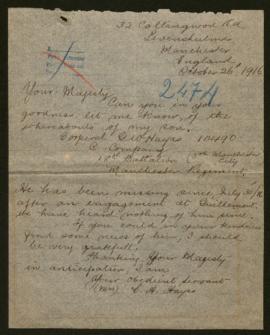 32 Collingwood Rd
Levenshulme
Manchester
England
October 26" 1916
2474
Your Majesty
Can you in your
goodness let me know of the
whereabouts of my son.
Corporal G H Hayes 10490
C Company
18th Battalion
Manchester Regiment.
He has been missing since July
after an engagement at Guillemont.
We have heard nothing of him since.
If you could in your kindness
find some news of him, I should
be very grateful.
Thanking Your Majesty
in anticipation, I am
Your obedient servant
(Mrs) C. A. Hayes